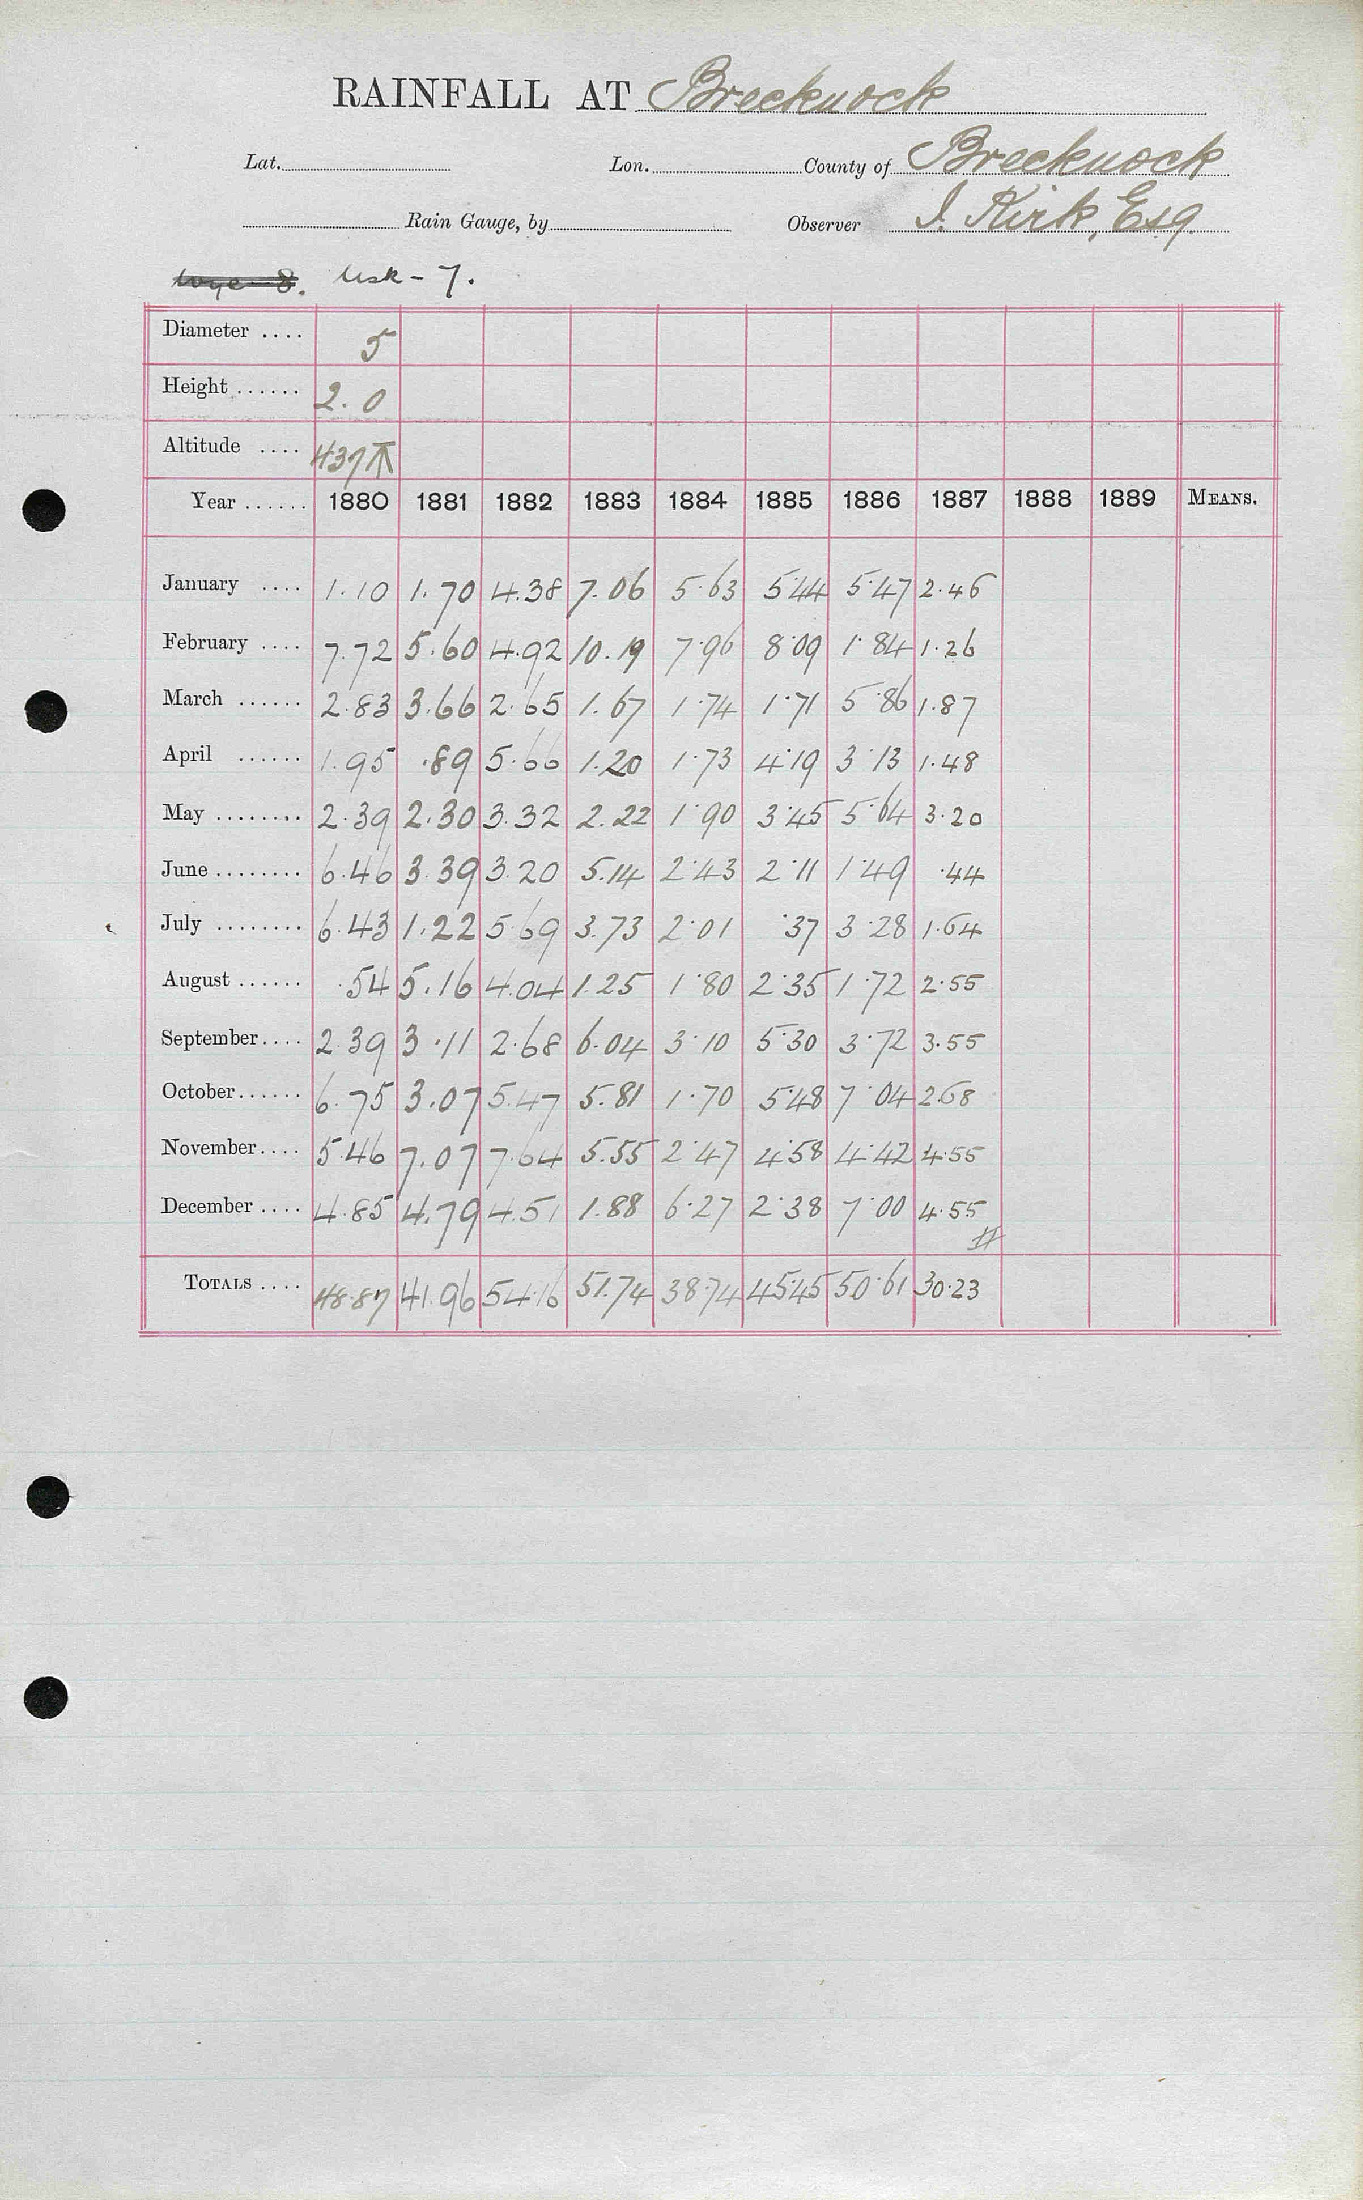 RAINFALL AT Brecknock
Lat. Lon. County of Brecknock
Rain Gauge, by Observer J. Kirk, Esq
Wye 8. Usk - 7.
Diameter .... 5
Height ...... 2.0
Altitude .... 437
Year ...... 1880 1881 1882 1883 1884 1885 1886 1887 1888 1889 MEANS.
January .... 1.10 1.70 4.38 7.06 5.63 5.44 5.47 2.46
February .... 7.72 5.60 4.92 10.19 7.96 8.09 1.84 1.26
March ...... 2.83 3.66 2.65 1.67 1.74 1.71 5.86 1.87
April ...... 1.95 .89 5.66 1.20 1.73 4.19 3.13 1.48
May ........ 2.39 2.30 3.32 2.22 1.90 3.45 5.64 3.20
June ........ 6.46 3.39 3.20 5.14 2.43 2.11 1.49 .44
July ........ 6.43 1.22 5.69 3.73 2.01 .37 3.28 1.64
August ...... .54 5.16 4.04 1.25 1.80 2.35 1.72 2.55
September.... 2.39 3.11 2.68 6.04 3.10 5.30 3.72 3.55
October...... 6.75 3.07 5.47 5.81 1.70 5.48 7.04 2.68
November.... 5.46 7.07 7.64 5.55 2.47 4.58 4.42 4.55
December .... 4.85 4.79 4.51 1.88 6.27 2.38 7.00 4.55
TOTALS .... 48.87 41.96 54.16 51.74 38.74 45.45 50.61 30.23